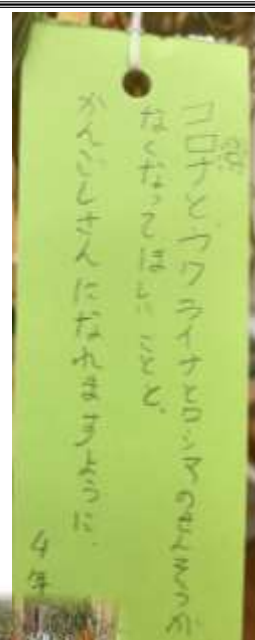 コロナと、ウクライナとロシアのせんそうが
なくなってほしいことと、
かんごしさんになれますように。
4年